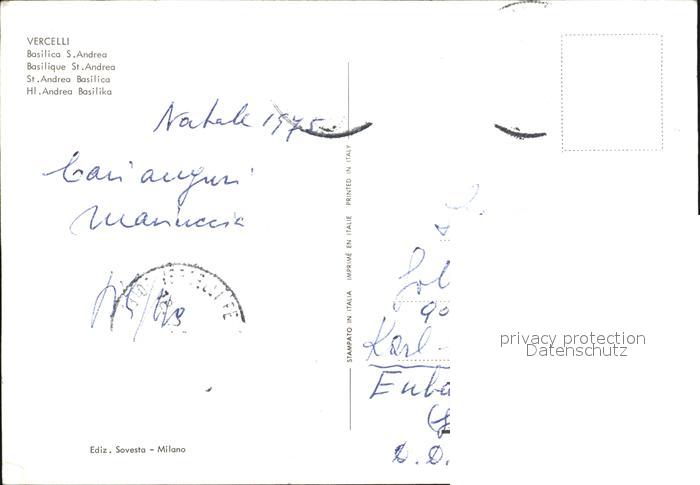 VERCELLI
Basilica S.Andrea
Basilique St.Andrea
St.Andrea Basilica
Hl.Andrea Basilika
Natale 1975
Cari auguri
Mariuccia
STAMPATO IN ITALIA IMPRIMÉ EN ITALIE PRINTED IN ITALY
90
Karl-
D.D.
privacy protection
Datenschutz
Ediz. Sovesta - Milano